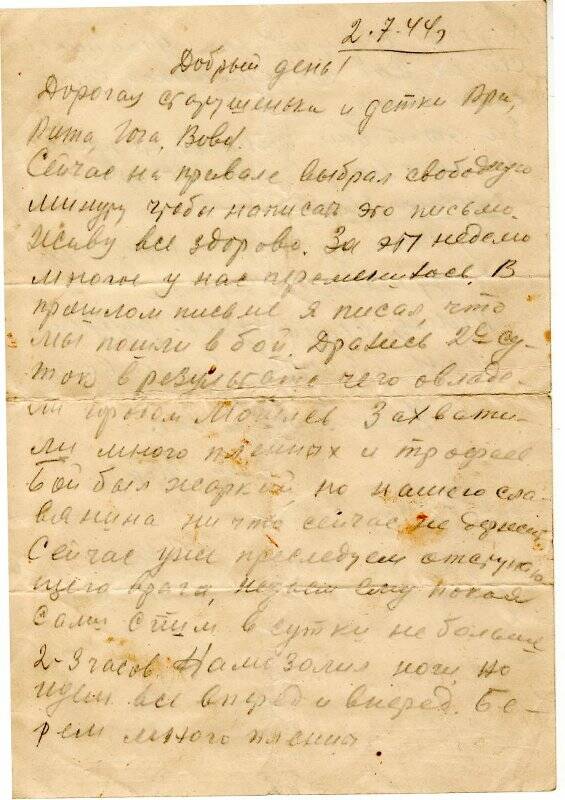 2.7.44г
Добрый день!
Дорогая старушенька и детки Ира,
Рита, Гога, Вова.
Сейчас на привале выбрал свободную
минуту чтобы написать это письмо.
Живу все здорово. За эту неделю
многое у нас переменилось. В
прошлом письме я писал, что
мы пошли в бой. Дрались 2е су-
ток в результате чего овладе-
ли городом Могилев Захвати-
ли много пленных и трофеев
Бой был жаркий но нашего сла-
вянина ни что сейчас не держит
Сейчас уже преследуем отступаю
щего врага, недаем ему покоя
сами спим в сутки не больше
2-3 часов. Намозолил ноги, но
идем все вперед и вперед. Бе-
рем много пленны